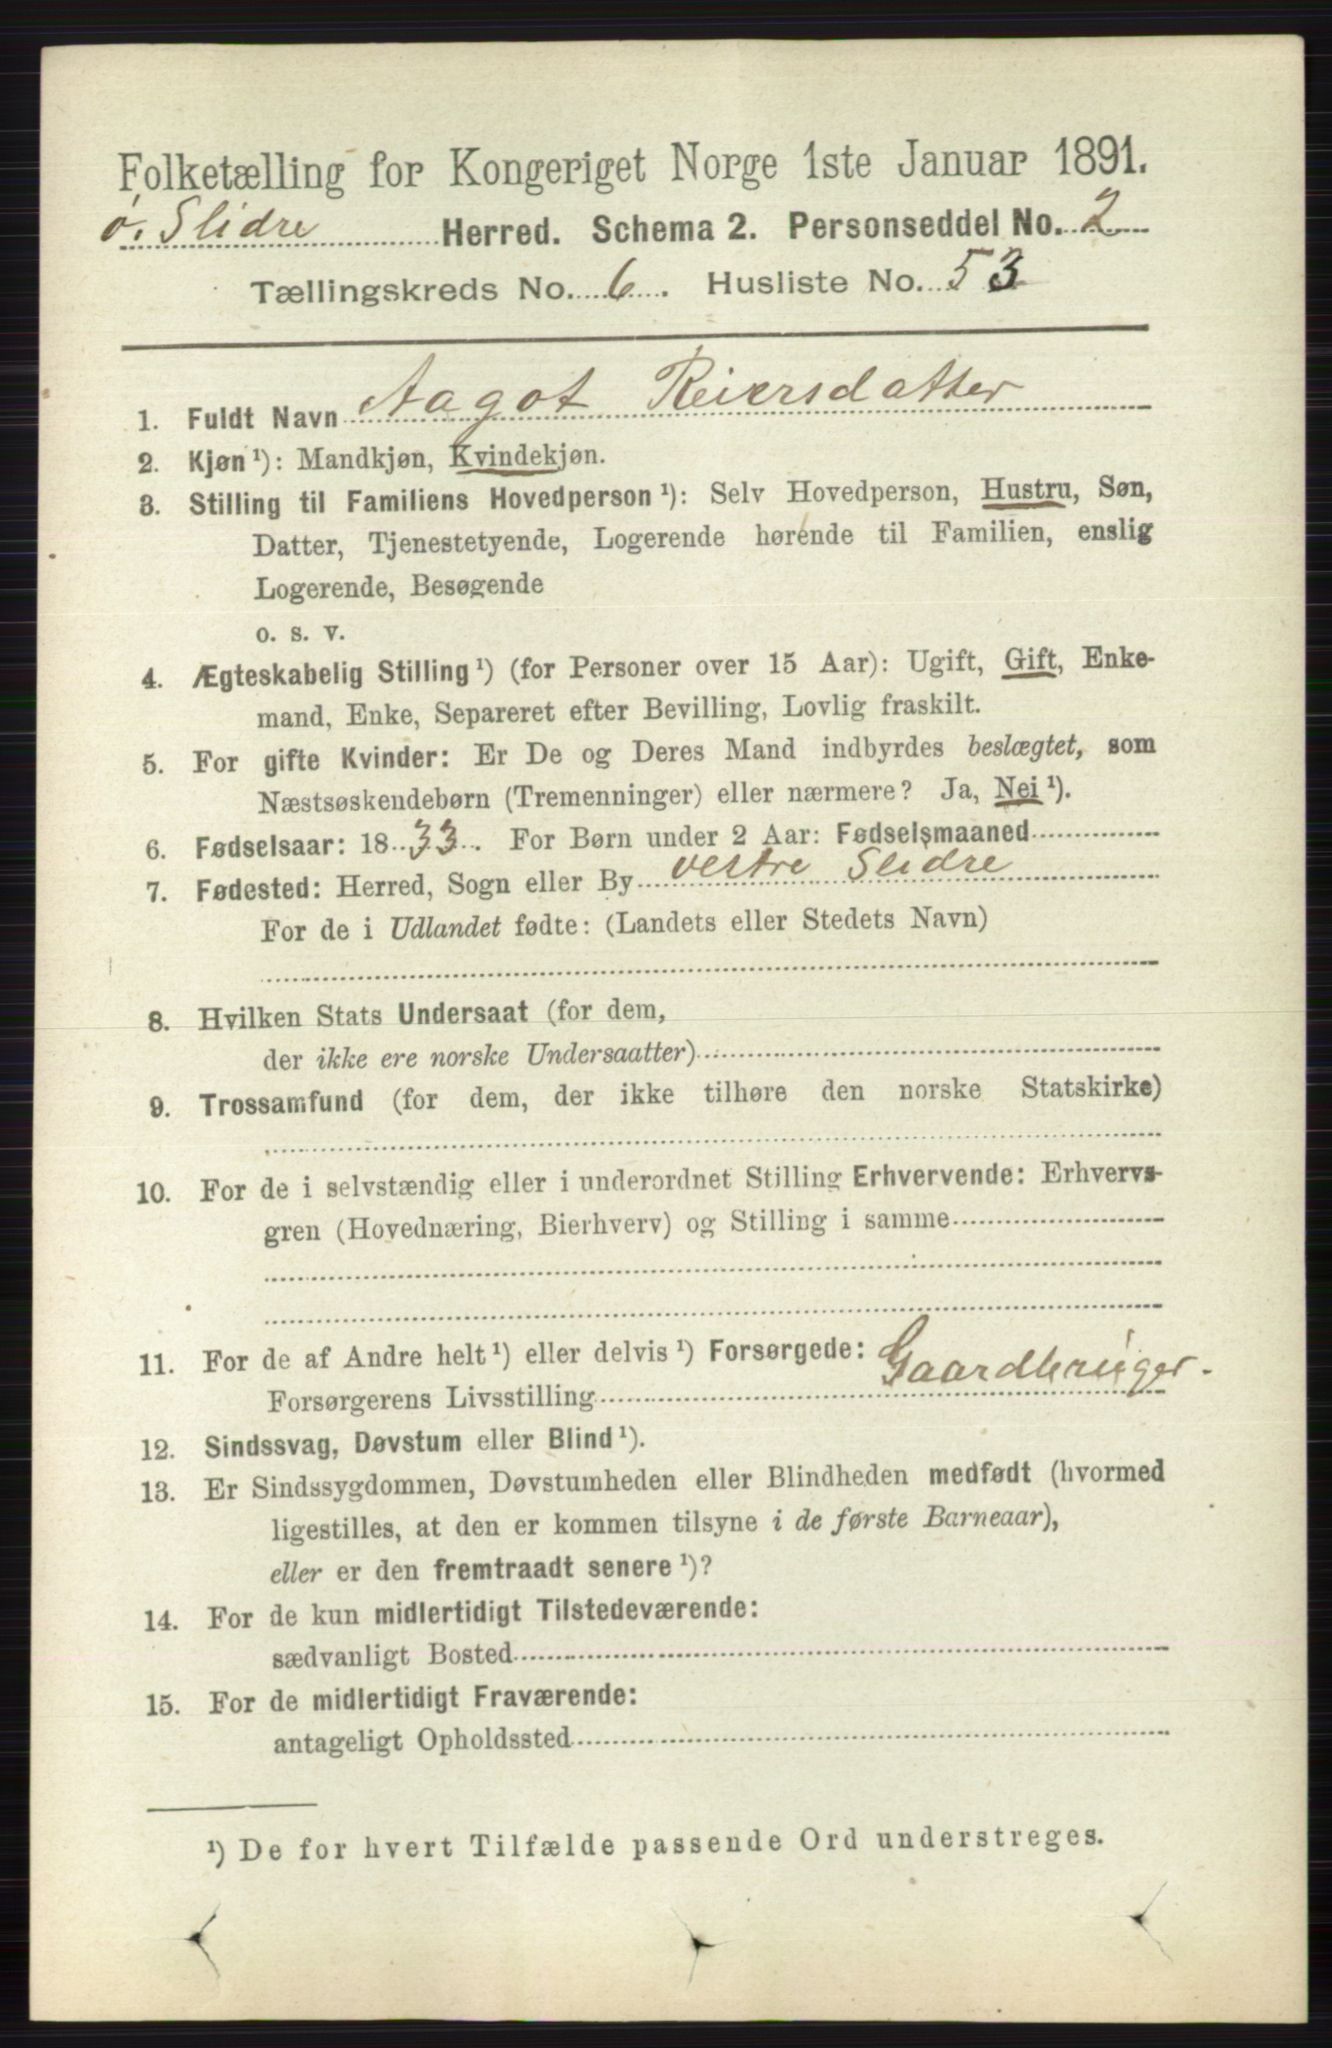 Folketælling for Kongeriget Norge 1ste Januar 1891.
ø. Slidre Herred. Schema 2. Personseddel No. 2
Tællingskreds No. 6. Husliste No. 53
1. Fuldt Navn Aagot Reiersdatter
2. Kjøn¹): Mandkjøn, Kvindekjøn.
3. Stilling til Familiens Hovedperson¹): Selv Hovedperson, Hustru, Søn,
Datter, Tjenestetyende, Logerende hørende til Familien, enslig
Logerende, Besøgende
o. s. v.
4. Ægteskabelig Stilling¹) (for Personer over 15 Aar): Ugift, Gift, Enke-
mand, Enke, Separeret efter Bevilling, Lovlig fraskilt.
5. For gifte Kvinder: Er De og Deres Mand indbyrdes beslægtet, som
Næstsøskendebørn (Tremenninger) eller nærmere? Ja, Nei¹).
6. Fødselsaar: 1833. For Børn under 2 Aar: Fødselsmaaned
7. Fødested: Herred, Sogn eller By vestre Slidre
For de i Udlandet fødte: (Landets eller Stedets Navn)
8. Hvilken Stats Undersaat (for dem,
der ikke ere norske Undersaatter)
9. Trossamfund (for dem, der ikke tilhøre den norske Statskirke)
10. For de i selvstændig eller i underordnet Stilling Erhvervende: Erhvervs-
gren (Hovednæring, Bierhverv) og Stilling i samme
11. For de af Andre helt¹) eller delvis¹) Forsørgede:
Forsørgerens Livsstilling Gaardbruger.
12. Sindssvag, Døvstum eller Blind¹).
13. Er Sindssygdommen, Døvstumheden eller Blindheden medfødt (hvormed
ligestilles, at den er kommen tilsyne i de første Barneaar),
eller er den fremtraadt senere¹)?
14. For de kun midlertidigt Tilstedeværende:
sædvanligt Bosted
15. For de midlertidigt Fraværende:
antageligt Opholdssted
¹) De for hvert Tilfælde passende Ord understreges.